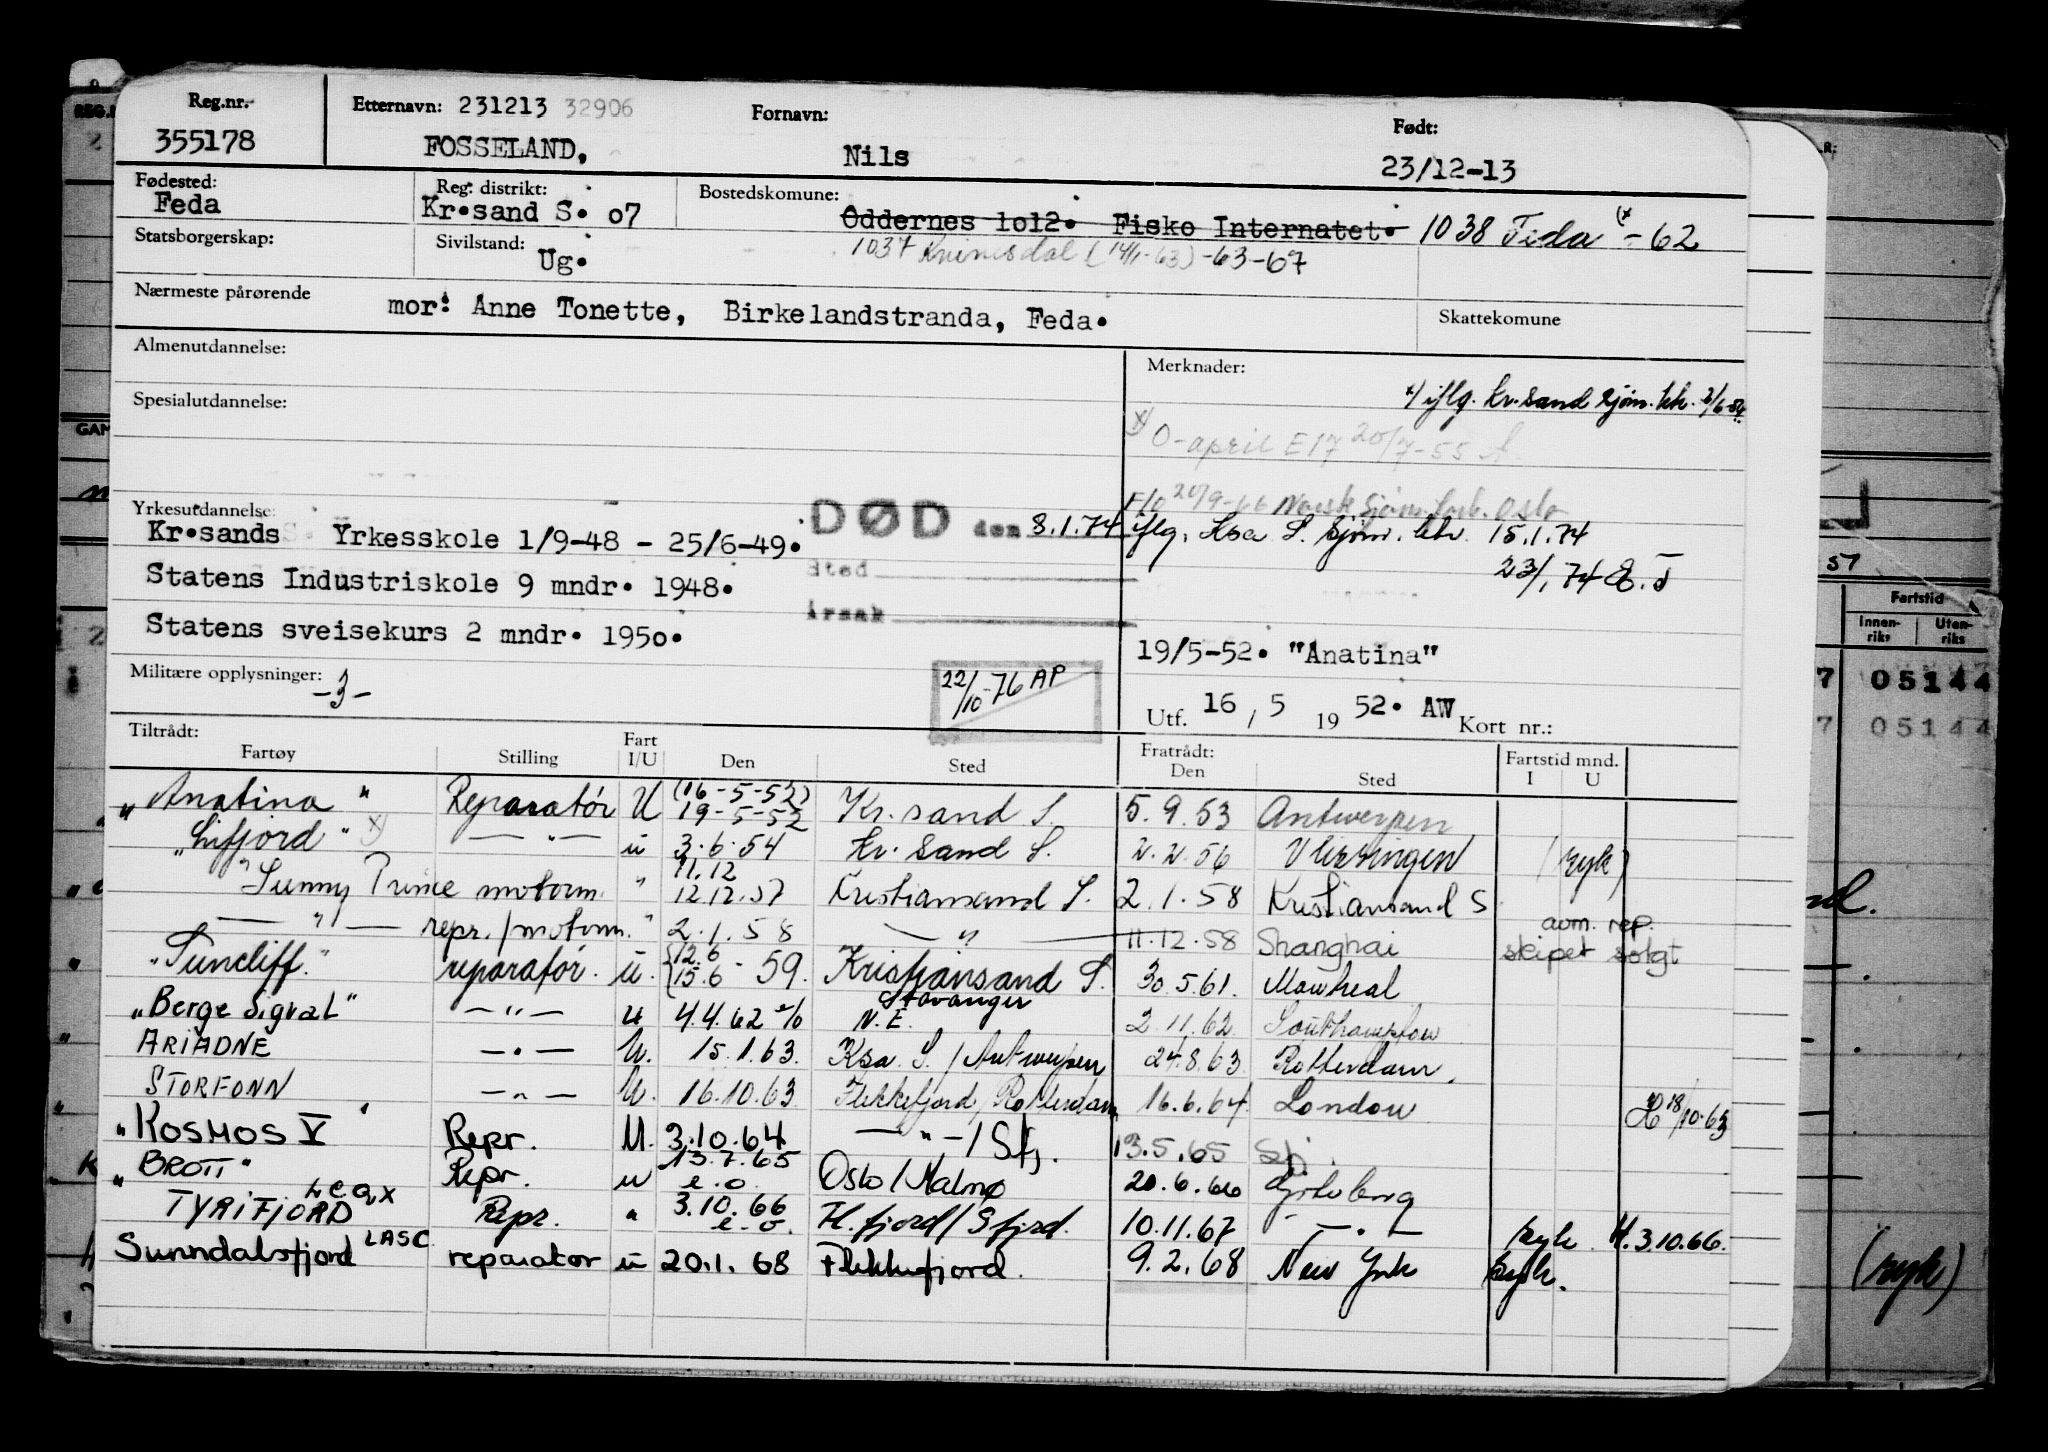 Reg.nr. Etternavn: 231213 32906 Fornavn: Født:
355178 FOSSELAND, Nils 23/12-13
Fødested: Reg. distrikt: Bostedskomune:
Feda Kr.sand S. o7 Oddernes 1o12. Fisko Internatet. 1038 Feda (x - 62
Statsborgerskap: Sivilstand: 1037 Kvinesdal (14/1-63) -63-67
Ug.
Nærmeste pårørende mor: Anne Tonette, Birkelandstranda, Feda. Skattekomune
Almenutdannelse: Merknader:
x) iflg. Kr.sand sjøm.kk.
Spesialutdannelse:
x) O-april E17 20/7-55
20/9-66 Norsk Sjøm. Oslo
Yrkesutdannelse:
Kr.sands S. Yrkesskole 1/9-48 - 25/6-49. DØD den 8.1.74 iflg. Ksa S. Sjøm. 15.1.74
Statens Industriskole 9 mndr. 1948. Sted 23/1.74 E.T
Statens sveisekurs 2 mndr. 195o. Årsak
19/5-52. "Anatina"
Militære opplysninger: -3- 22/10-76 AP
Utf. 16 / 5 19 52. AW Kort nr.:
Tiltrådt: Fratrådt:
Fartøy Stilling Fart I/U Den Sted Den Sted Fartstid mnd. I U
"Anatina" Reparatør U (16-5-52) 19-5-52 Kr.sand S. 5.9.53 Antwerpen
"Lifjord" x) — " — u 3.6.54 Kr. Sand S. 2.2.56 Vlissingen (syk)
"Sunny Prince motorm. " 11.12 12.12.57 Kristiansand S. 2.1.58 Kristiansand S
— " — repr./motorm. " 2.1.58 — " — 11.12.58 Shanghai avm. rep. skipet solgt
"Suncliff." reparatør. u. {12.6 15.6 - 59. Kristiansand S. 30.5.61. Montreal
"Berge Sigval" — " — u 4.4.62 Stavanger N.E. 2.11.62 Southampton
ARIADNE — " — U. 15.1.63. Ksa. S. / Antwerpen 24.8.63 Rotterdam.
STORFONN — " — U. 16.10.63 Flekkefjord/Rotterdam 16.6.64 London 18/10-63
"KOSMOS V Repr. U. 3.10.64 — " — / Sfj. 13.5.65 Sfj.
"BROTT" Repr. u 13.7.65 e.o. Oslo/Malmø 20.6.66 Gøteborg
TYRIFJORD LEQX Repr. " 3.10.66 e-o. Fl.fjord/Sfjrd. 10.11.67 — " — syk H. 3.10.66.
Sunndalsfjord LASC reparatør u 20.1.68 Flekkefjord. 9.2.68 New York syk.
GAM
57
Fartstid
Innen-riks Uten-riks
7 05144
7 05144
(syk)